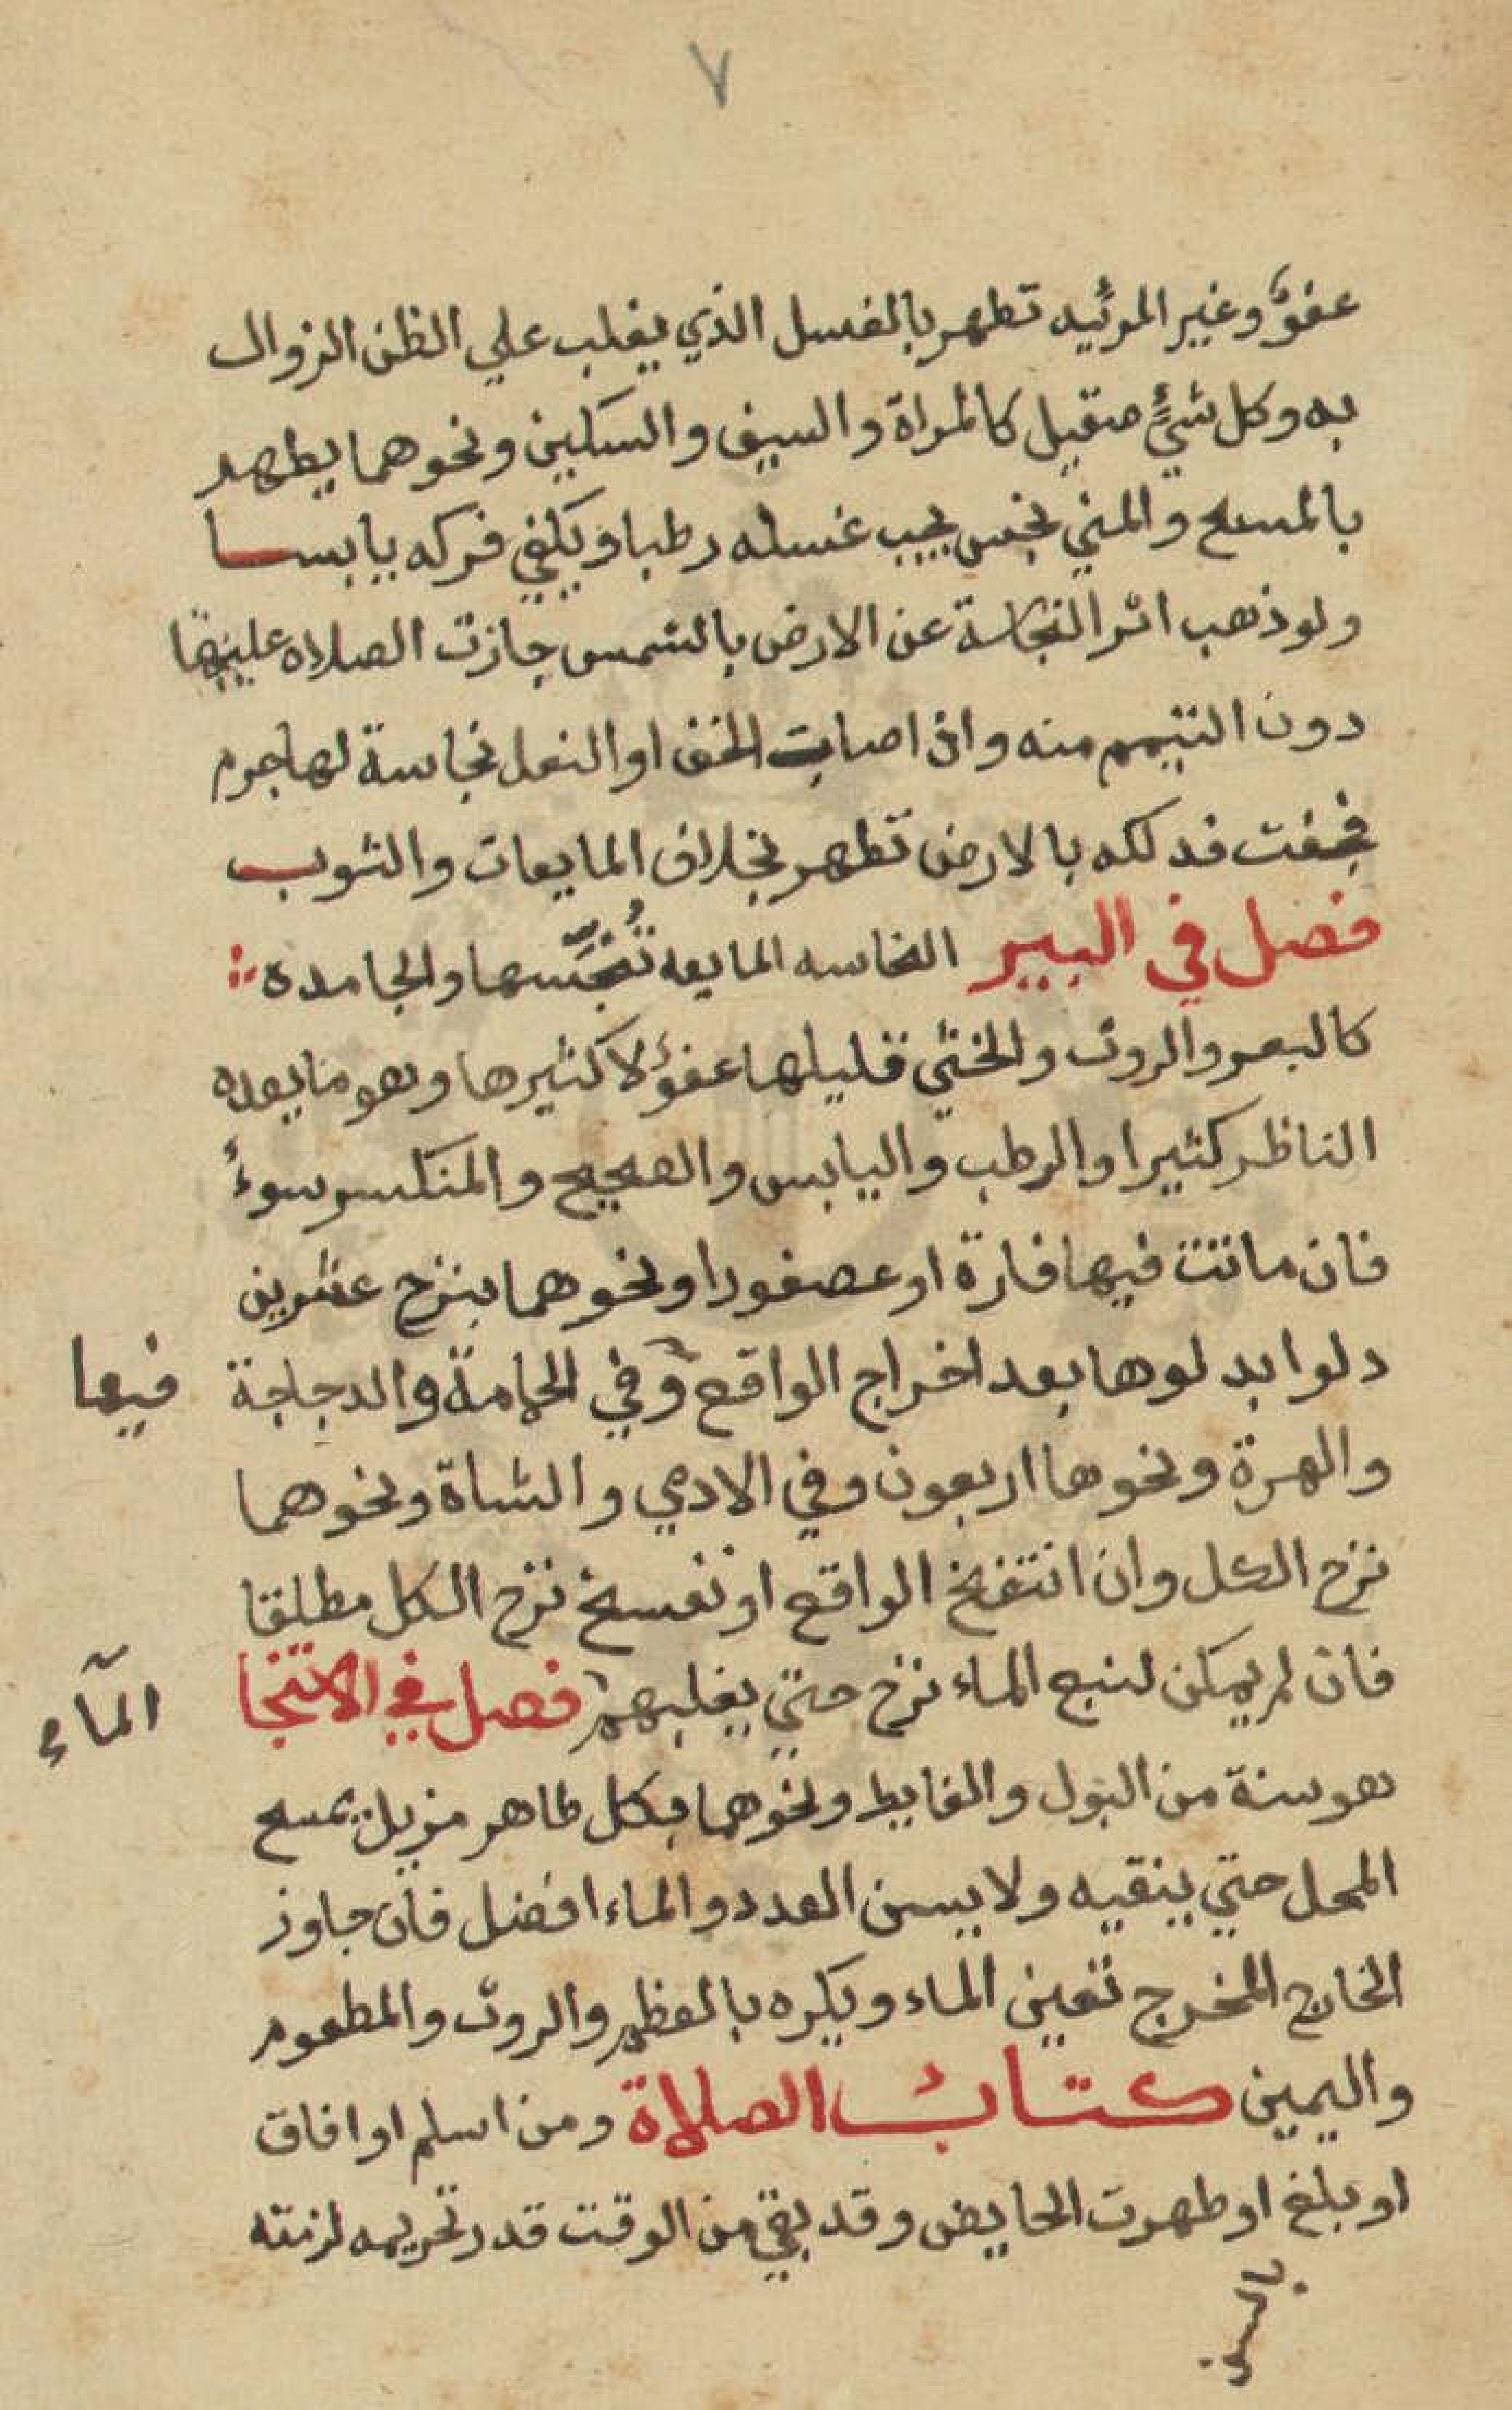 ٧
عفوٌ وغير المرئيه تطهر بالغسل الذي يغلب علي الظن الزوال
به وكل شيءٍ صقيل كالمراة والسيف والسكين ونحوهما يطهر
بالمسح والمني نجس يجب غسله رطبا ويكفي فركه يابسا
ولو ذهب اثر النجاسة عن الارض بالشمس جازت الصلاه عليها
دون التيمم منه وان اصابت الخف او النعل نجاسة لها جرم
فجفت فدلكه بالارض تطهر بخلاف المايعات والثوب
فصل في البير النجاسه المايعه تُنَجِّسها والجامده
كالبعر والروث والخثي قليلها عفوٌ لا كثيرها وهو ما يعده
الناظر كثيرا والرطب واليابس والصحيح والمنكسر سوءٌ
فان ماتت فيها فارة او عصفورا ونحوهما ينزح عشرين
دلوا بدلوها بعد اخراج الواقع وفي الحمامة والدجاجة
فيها
والهرة ونحوها اربعون وفي الادمي والشاة ونحوهما
نزح الكل وان انتفخ الواقع او تفسخ نزح الكل مطلقا
فان لم يمكن لنبع الماء نزح حتي يغلبهم فصل في الاستنجا
المآء
هو سنة من البول والغايط ونحوهما بكل طاهر مزيل يمسح
المحل حتي ينقيه ولا يسن العدد والماء افضل فان جاوز
الخارج المخرج تعين الماء ويكره بالعظم والروث والمطعوم
واليمين كتاب الصلاة ومن اسلم او افاق
او بلغ او طهرت الحايض وقد بقي من الوقت قدر تحريمه لزمته